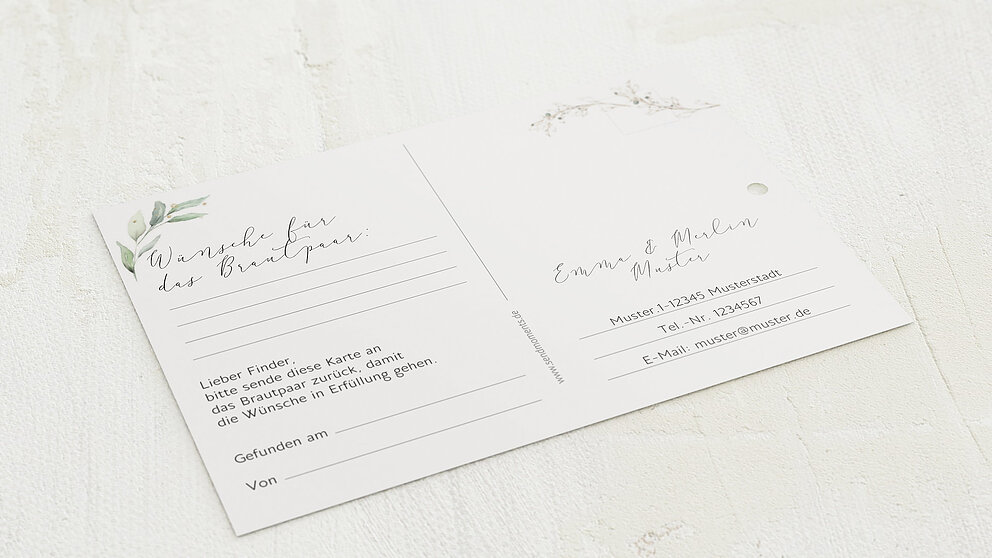 Wünsche für
das Brautpaar:
Lieber Finder,
bitte sende diese Karte an
das Brautpaar zurück, damit
die Wünsche in Erfüllung gehen.
Gefunden am
Von
www.sendmoments.de
Emma & Merlin
Muster
Muster.1-12345 Musterstadt
Tel.-Nr. 1234567
E-Mail: muster@muster.de